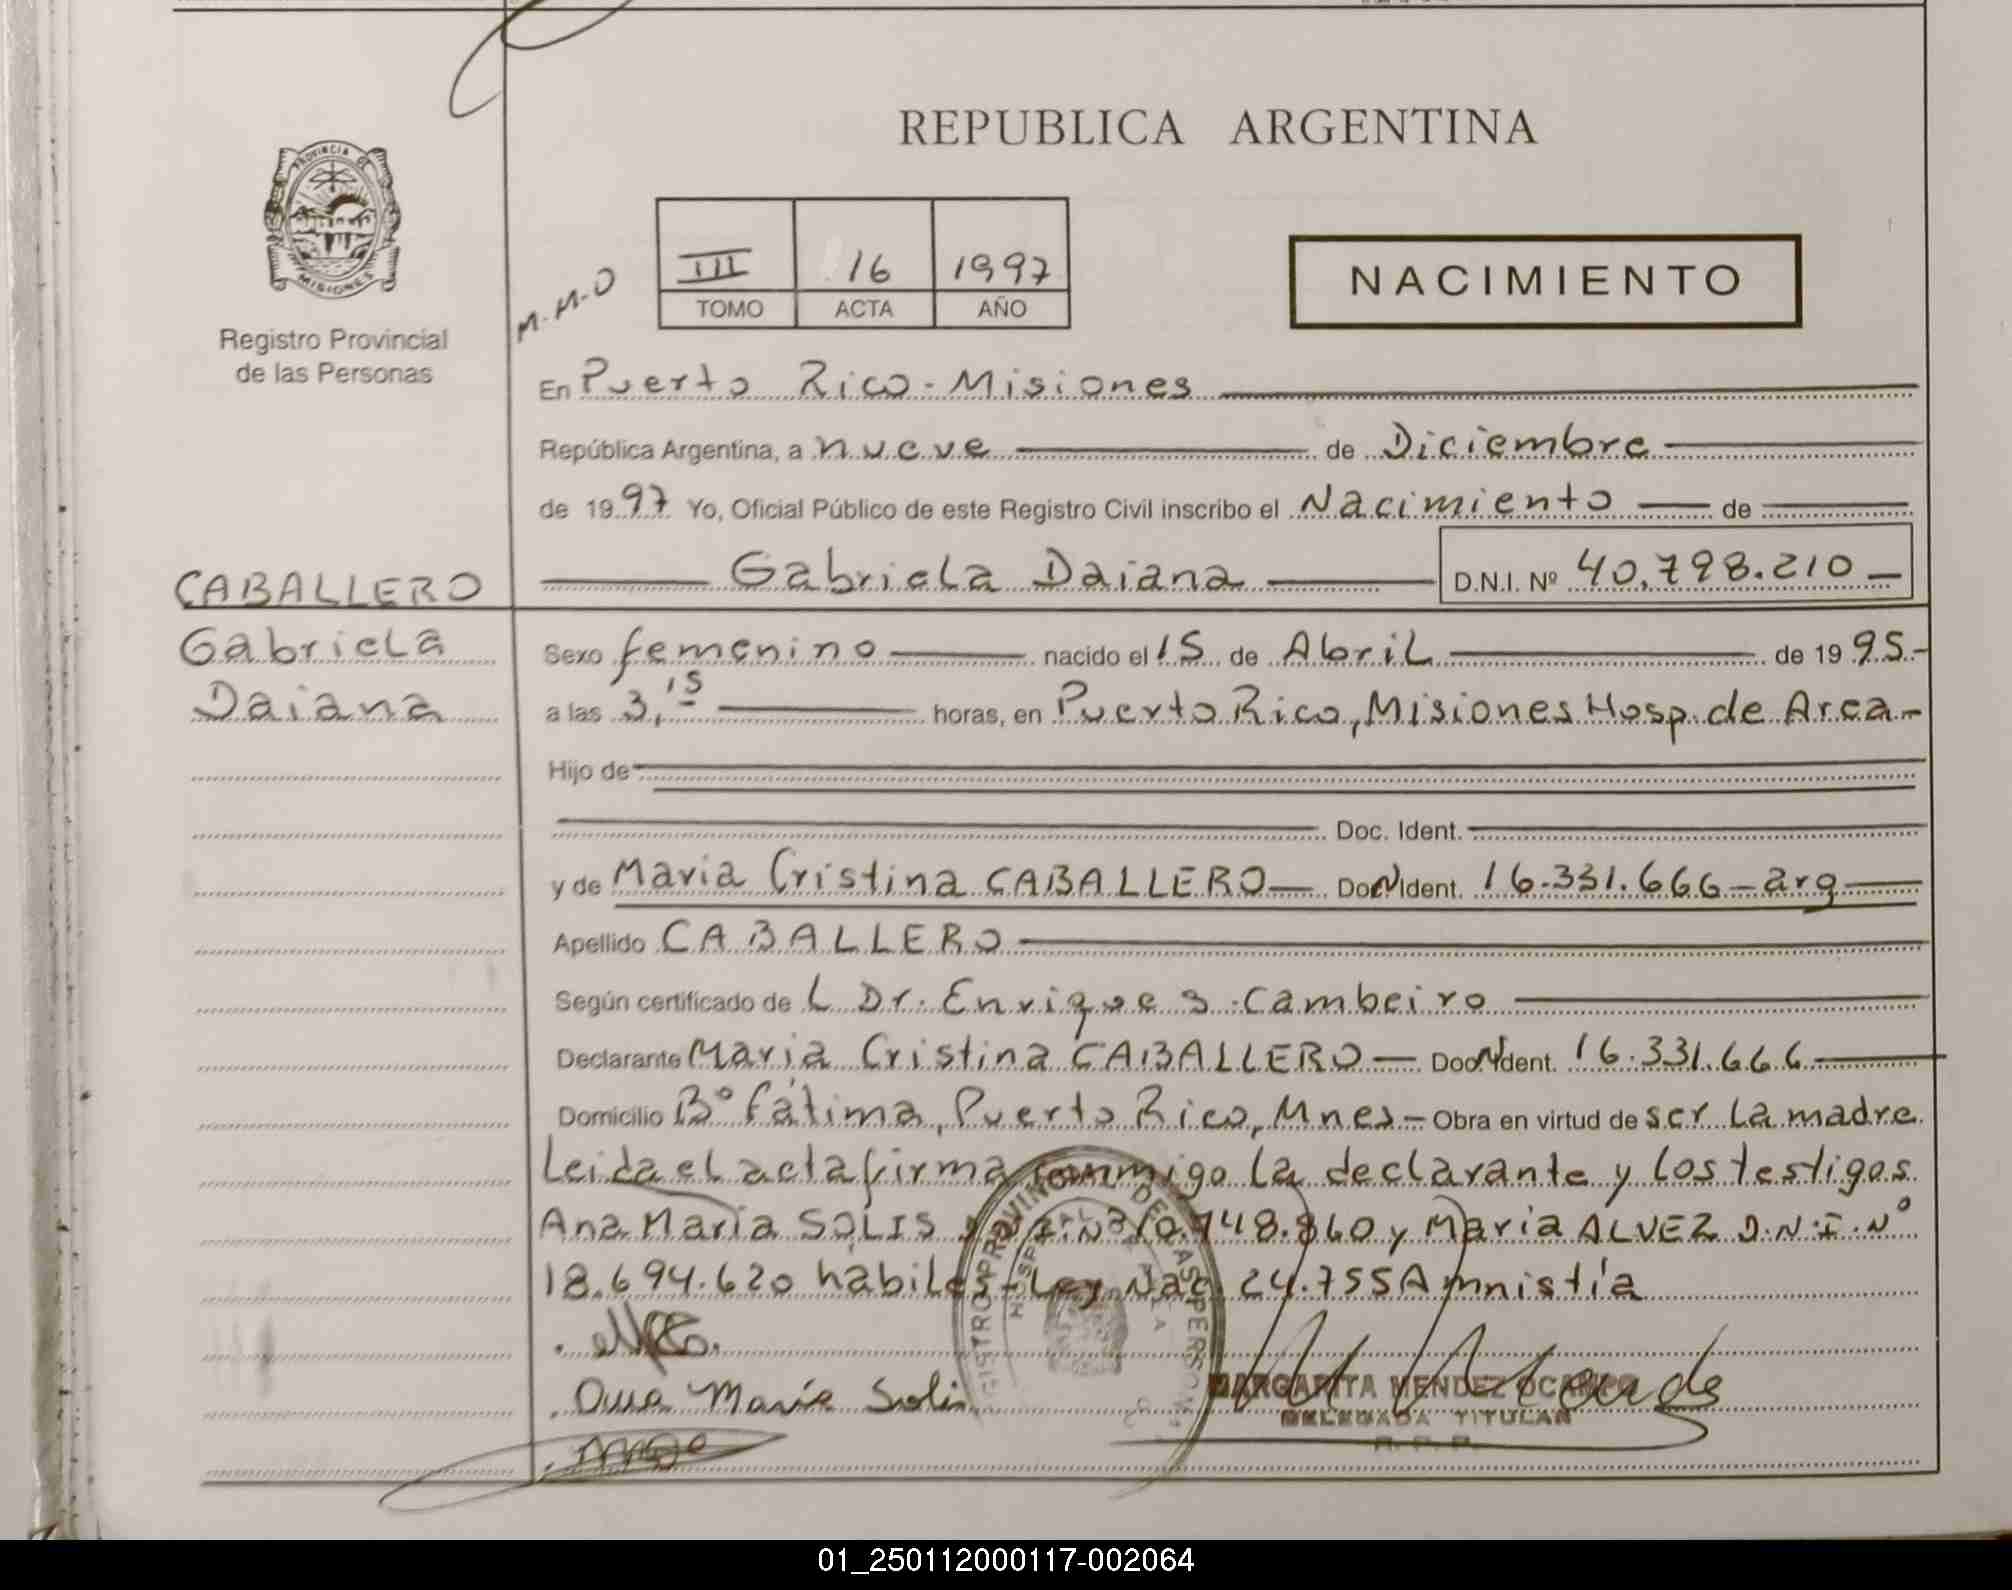 REPUBLICA ARGENTINA
PROVINCIA DE
MISIONES
Registro Provincial
de las Personas
M.M.O
III 16 1997
TOMO ACTA AÑO
NACIMIENTO
En Puerto Rico - Misiones
República Argentina, a nueve de Diciembre
de 1997 Yo, Oficial Público de este Registro Civil inscribo el Nacimiento de
Gabriela Daiana D.N.I. Nº 40.798.210
CABALLERO
Gabriela
Daiana
Sexo femenino nacido el 15 de Abril de 1995.-
a las 3,15 horas, en Puerto Rico, Misiones Hosp. de Area-
Hijo de
Doc. Ident.
y de Maria Cristina CABALLERO Doc. Ident. 16.331.666 - arg
Apellido CABALLERO
Según certificado de L Dr. Enrique S. Cambeiro
Declarante Maria Cristina CABALLERO Doc. Ident. 16.331.666
Domicilio Bº Fátima, Puerto Rico, Mnes - Obra en virtud de ser la madre
Leida el acta firma conmigo la declarante y los testigos
Ana Maria SOLIS 748.860 y Maria ALVEZ D.N.I.Nº
18.694.620 habiles - Ley Nac. 24.755 Amnistía
Ana María Solis
REGISTRO PROVINCIAL DE LAS PERSONAS
HOSPITAL DE
MARGARITA MENDEZ OCAMPO
DELEGADA TITULAR
R. P. P.
01_250112000117-002064